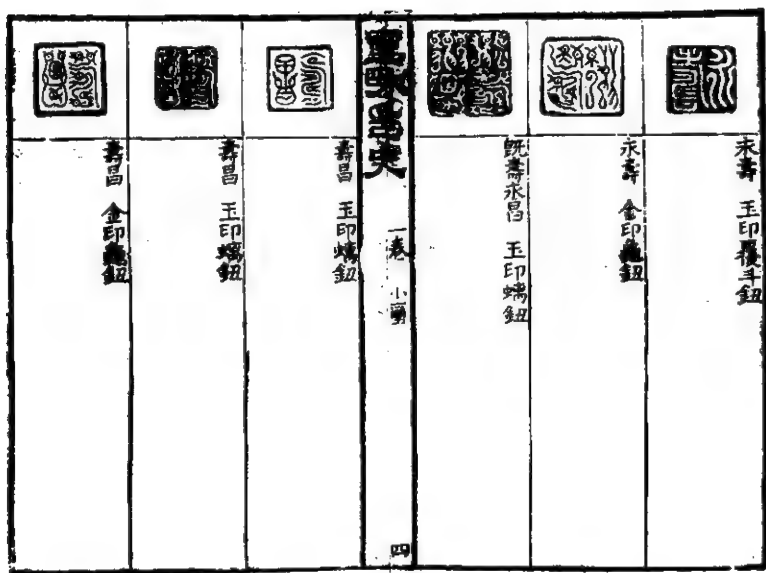 永壽 玉印覆斗鈕
永壽 金印龜鈕
既壽永昌 玉印螭鈕
一卷 小璽
四
壽昌 玉印螭鈕
壽昌 玉印螭鈕
壽昌 金印龜鈕